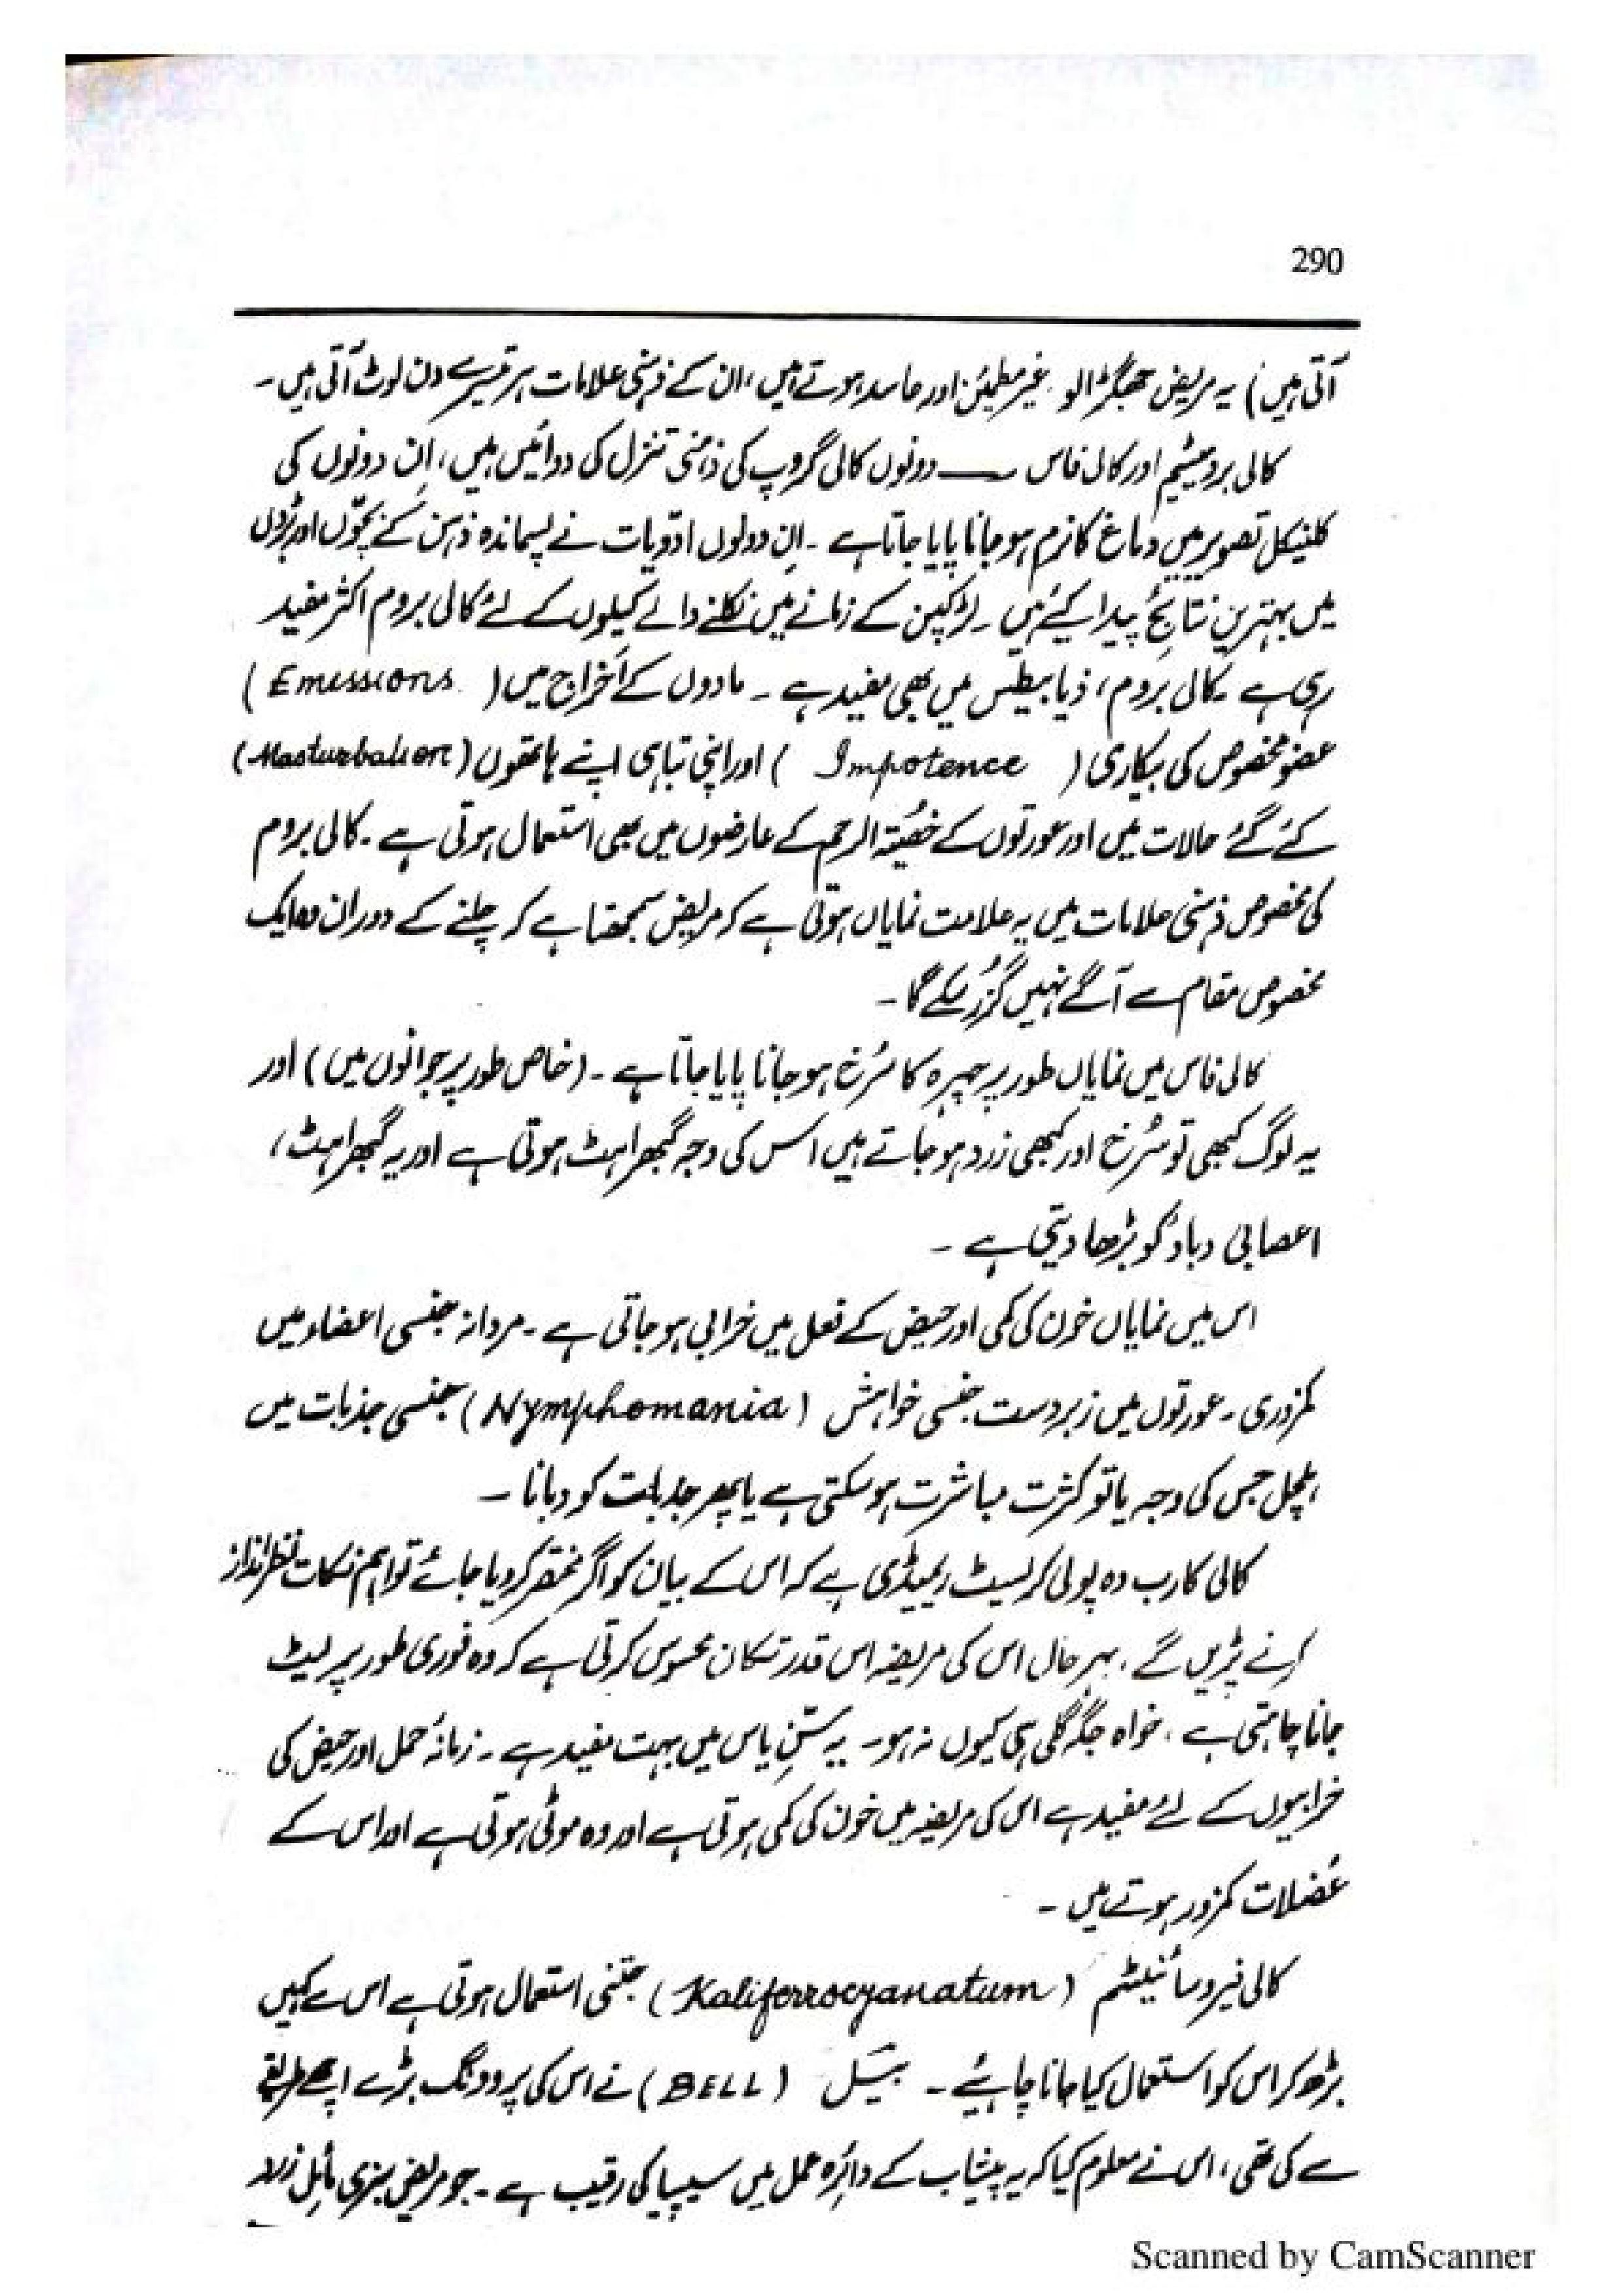 290
آتی ہیں) یہ مریض جھگڑالو، غیر مطمئن اور حاسد ہوتے ہیں، ان کے ذہنی علامات ہر تیسرے دن لوٹ آتی ہیں۔
کالی برومیٹم اور کالی فاس — دونوں کالی گروپ کی ذہنی تنزل کی دوائیں ہیں، اِن دونوں کی
کلنیکل تصویر میں دماغ کا نرم ہو جانا پایا جاتا ہے ۔ اِن دونوں ادویات نے پسماندہ ذہن کے بچّوں اور بڑوں
میں بہترین نتائج پیدا کیے ہیں ۔ لڑکپن کے زمانے میں نکلنے والے کیلوں کے لئے کالی بروم اکثر مفید
رہی ہے ۔ کالی بروم، ذیابیطس میں بھی مفید ہے ۔ مادوں کے اخراج میں ( Emissions )
عضو مخصوص کی بیکاری ( Impotence ) اور اپنی تباہی اپنے ہاتھوں (Masturbation)
کئے گئے حالات میں اور عورتوں کے خصیۃ الرحم کے عارضوں میں بھی استعمال ہوتی ہے ۔ کالی بروم
کی مخصوص ذہنی علامات میں یہ علامت نمایاں ہوتی ہے کہ مریض سمجھتا ہے کہ چلنے کے دوران وہ ایک
مخصوص مقام سے آگے نہیں گزُر سکے گا ۔
کالی فاس میں نمایاں طور پر چہرہ کا سُرخ ہو جانا پایا جاتا ہے ۔ (خاص طور پر جوانوں میں) اور
یہ لوگ کبھی تو سُرخ اور کبھی زرد ہو جاتے ہیں اس کی وجہ گھبراہٹ ہوتی ہے اور یہ گھبراہٹ،
اعصابی دباؤ کو بڑھا دیتی ہے ۔
اس میں نمایاں خون کی کمی اور حیض کے فعل میں خرابی ہو جاتی ہے ۔ مردانہ جنسی اعضاء میں
کمزوری ۔ عورتوں میں زبردست جنسی خواہش (Nymphomania) جنسی جذبات میں
ہلچل جس کی وجہ یا تو کثرت مباشرت ہو سکتی ہے یا پھر جذبات کو دبانا ۔
کالی کارب وہ پولی کرسیٹ ریمیڈی ہے کہ اس کے بیان کو اگر مختصر کر دیا جائے تو اہم نکات نظر انداز
کرنے پڑیں گے ۔ بہر حال اس کی مریضہ اس قدر تکان محسوس کرتی ہے کہ وہ فوری طور پر لیٹ
جانا چاہتی ہے ، خواہ جگہ گلی ہی کیوں نہ ہو ۔ یہ سّنِ یاس میں بہت مفید ہے ۔ زمانۂ حمل اور حیض کی
خرابیوں کے لئے مفید ہے اس کی مریضہ میں خون کی کمی ہوتی ہے اور وہ موٹی ہوتی ہے اور اس کے
عُضلات کمزور ہوتے ہیں ۔
کالی فیروسائنیٹم (Kaliferrocyanatum) جتنی استعمال ہوتی ہے اس سے کہیں
بڑھ کر اس کو استعمال کیا جانا چاہیئے ۔ بیَل (BELL) نے اس کی پرووِنگ بڑے اچھے طریقے
سے کی تھی، اس نے معلوم کیا کہ یہ پیشاب کے دائرہ عمل میں سیپیا کی رقیب ہے ۔ جو مریض سبزی مائل زرد
Scanned by CamScanner